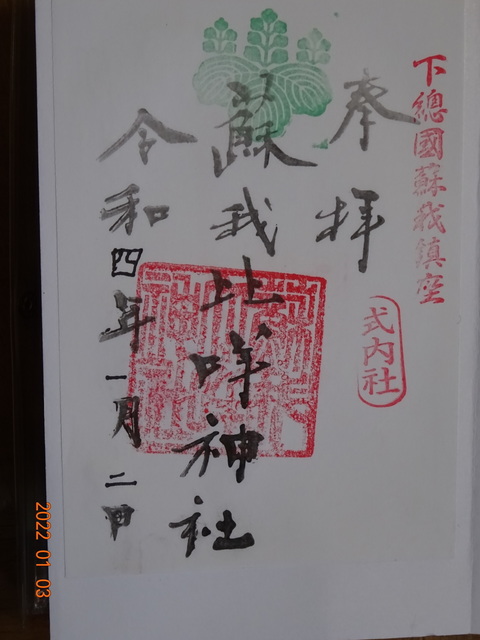 下總國蘇我鎮座
式内社
奉拝
蘇我比咩神社
令和四年一月二日
2022 01 03